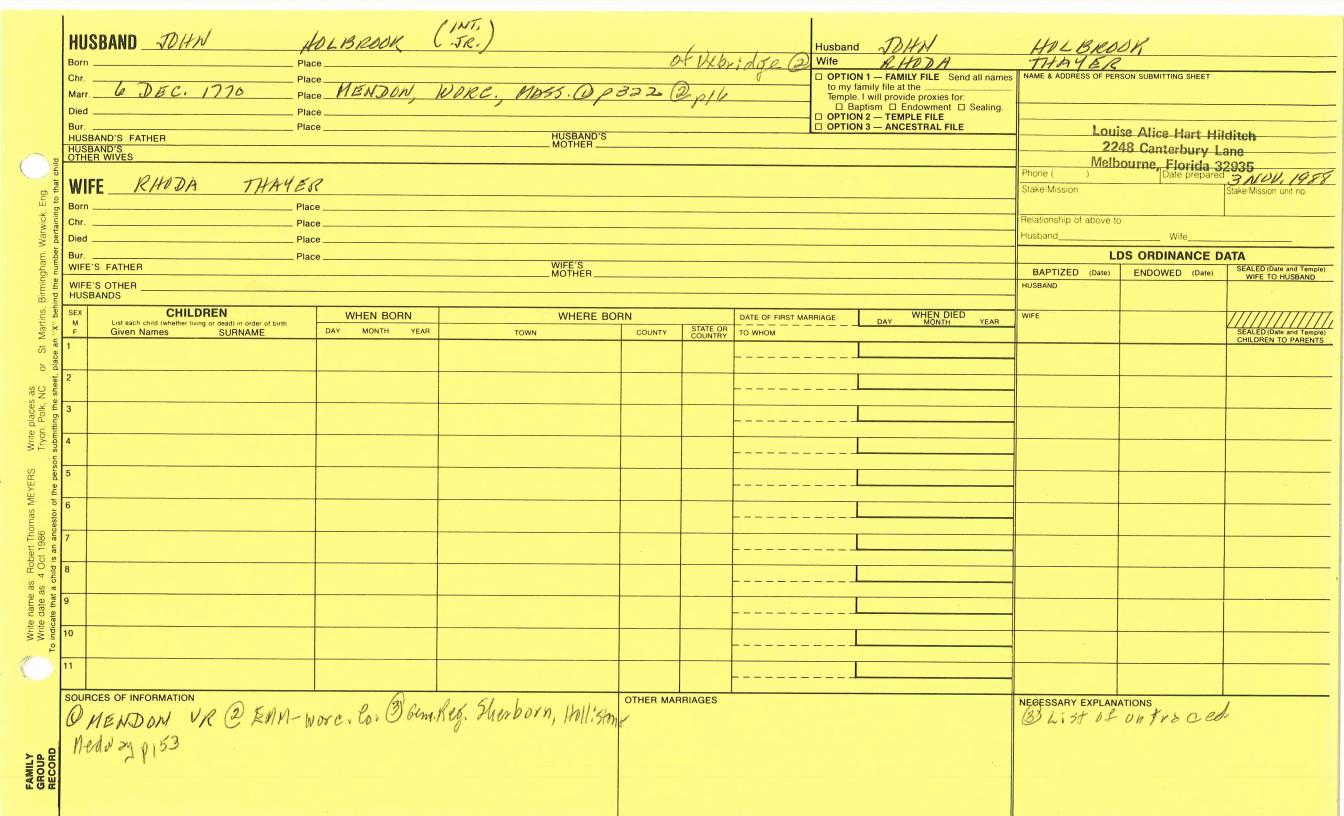 HUSBAND JOHN HOLBROOK (INT. JR.)
Born Place of Uxbridge ②
Chr. Place
Marr 6 DEC. 1770 Place MENDON, WORC., MASS. ① p322 ② p16
Died Place
Bur. Place
HUSBAND'S FATHER HUSBAND'S MOTHER
HUSBAND'S OTHER WIVES
WIFE RHODA THAYER
Born Place
Chr. Place
Died Place
Bur. Place
WIFE'S FATHER WIFE'S MOTHER
WIFE'S OTHER HUSBANDS
Husband JOHN HOLBROOK
Wife RHODA THAYER
☐ OPTION 1 — FAMILY FILE Send all names
to my family file at the
Temple. I will provide proxies for:
☐ Baptism ☐ Endowment ☐ Sealing.
☐ OPTION 2 — TEMPLE FILE
☐ OPTION 3 — ANCESTRAL FILE
NAME & ADDRESS OF PERSON SUBMITTING SHEET
Louise Alice Hart Hilditch
2248 Canterbury Lane
Melbourne, Florida 32935
Phone ( ) Date prepared 3 NOV. 1988
Stake/Mission Stake/Mission unit no.
Relationship of above to
Husband Wife
LDS ORDINANCE DATA
BAPTIZED (Date) ENDOWED (Date) SEALED (Date and Temple) WIFE TO HUSBAND
HUSBAND
WIFE
SEALED (Date and Temple) CHILDREN TO PARENTS
SEX M F
CHILDREN
List each child (whether living or dead) in order of birth
Given Names SURNAME
WHEN BORN
DAY MONTH YEAR
WHERE BORN
TOWN COUNTY STATE OR COUNTRY
DATE OF FIRST MARRIAGE
TO WHOM
WHEN DIED
DAY MONTH YEAR
1
2
3
4
5
6
7
8
9
10
11
SOURCES OF INFORMATION
① MENDON VR ② EMM-Worc. Co. ③ Gen. Reg. Sherborn, Holliston
Medway p153
OTHER MARRIAGES
NECESSARY EXPLANATIONS
③ List of untraced
Write name as: Robert Thomas MEYERS Write places as: Tryon, Polk, NC or St. Martins, Birmingham, Warwick, Eng
Write date as: 4 Oct 1986
To indicate that a child is an ancestor of the person submitting the sheet, place an "X" behind the number pertaining to that child
FAMILY GROUP RECORD